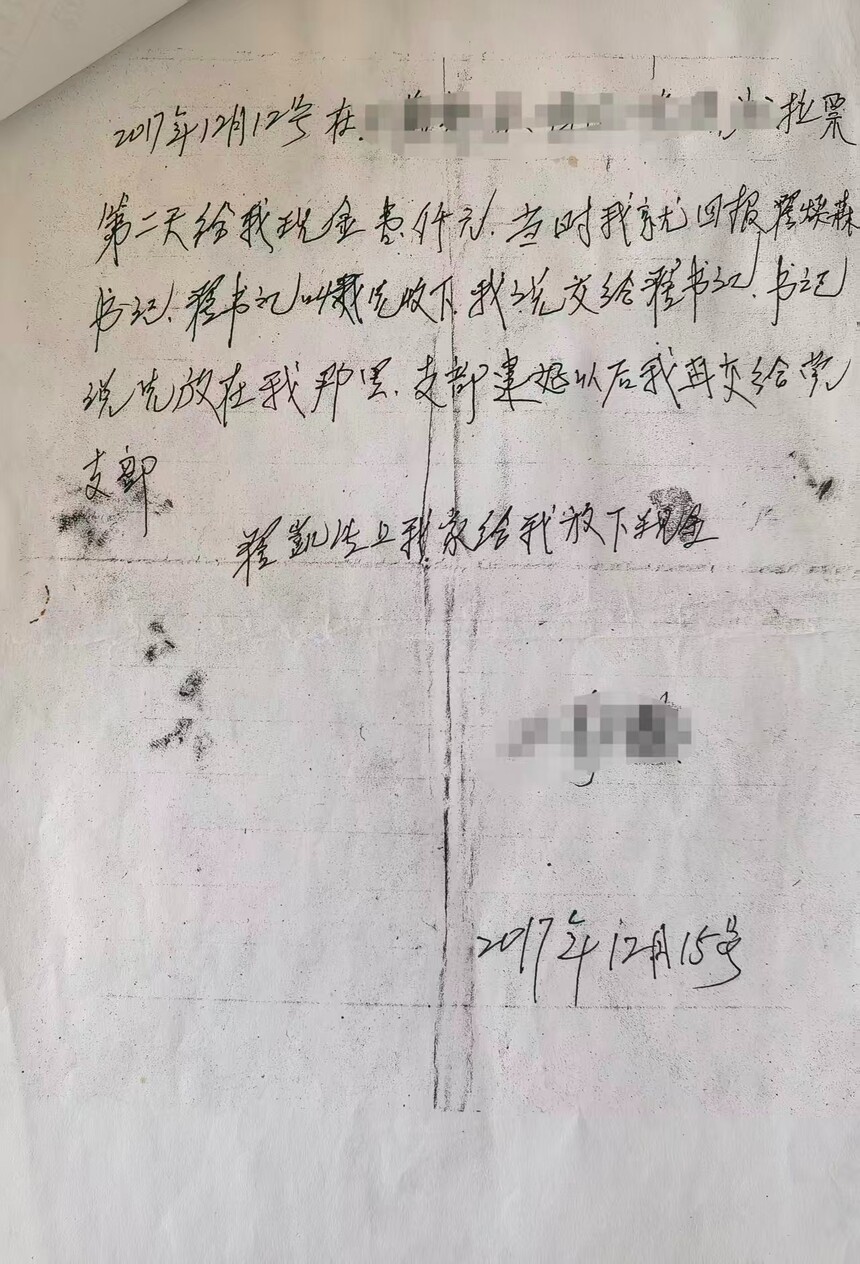 2017年12月12号在 拉票
第二天给我现金壹仟元.当时我就回报翟焕森
书记.翟书记叫我先收下.我说交给翟书记.书记
说先放在我那里.支部建好以后我再交给党
支部
翟凯 上我家给我放下现金
2017年12月15号